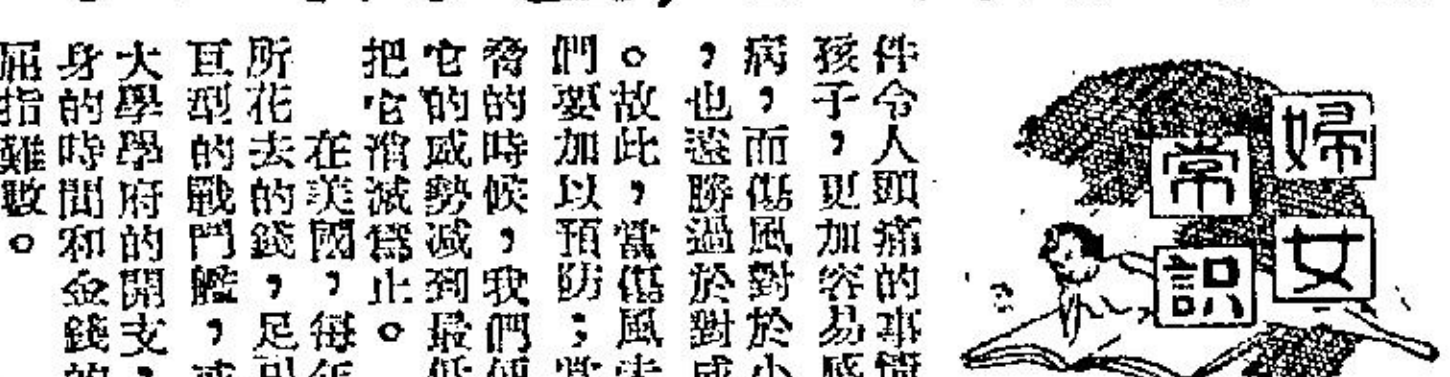 婦女
常識
件令人頭痛的事情
孩子，更加容易感
病，而傷風對於小
，也遠勝過於對成
。故此，當傷風未
們要加以預防；當
脅的時候，我們便
它的威勢減到最低
把它消滅為止。
在美國，每年
所花去的錢，足以
巨型的戰鬥艦，或
大學學府的開支，
身的時間和金錢的
屈指難數。